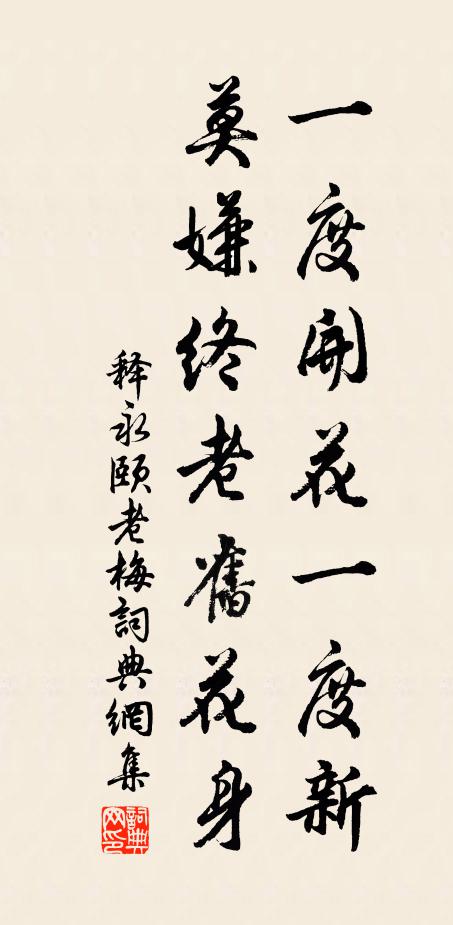 一度開花一度新
莫嫌終老舊花身
释永頤老梅詞典網集
詞典网印